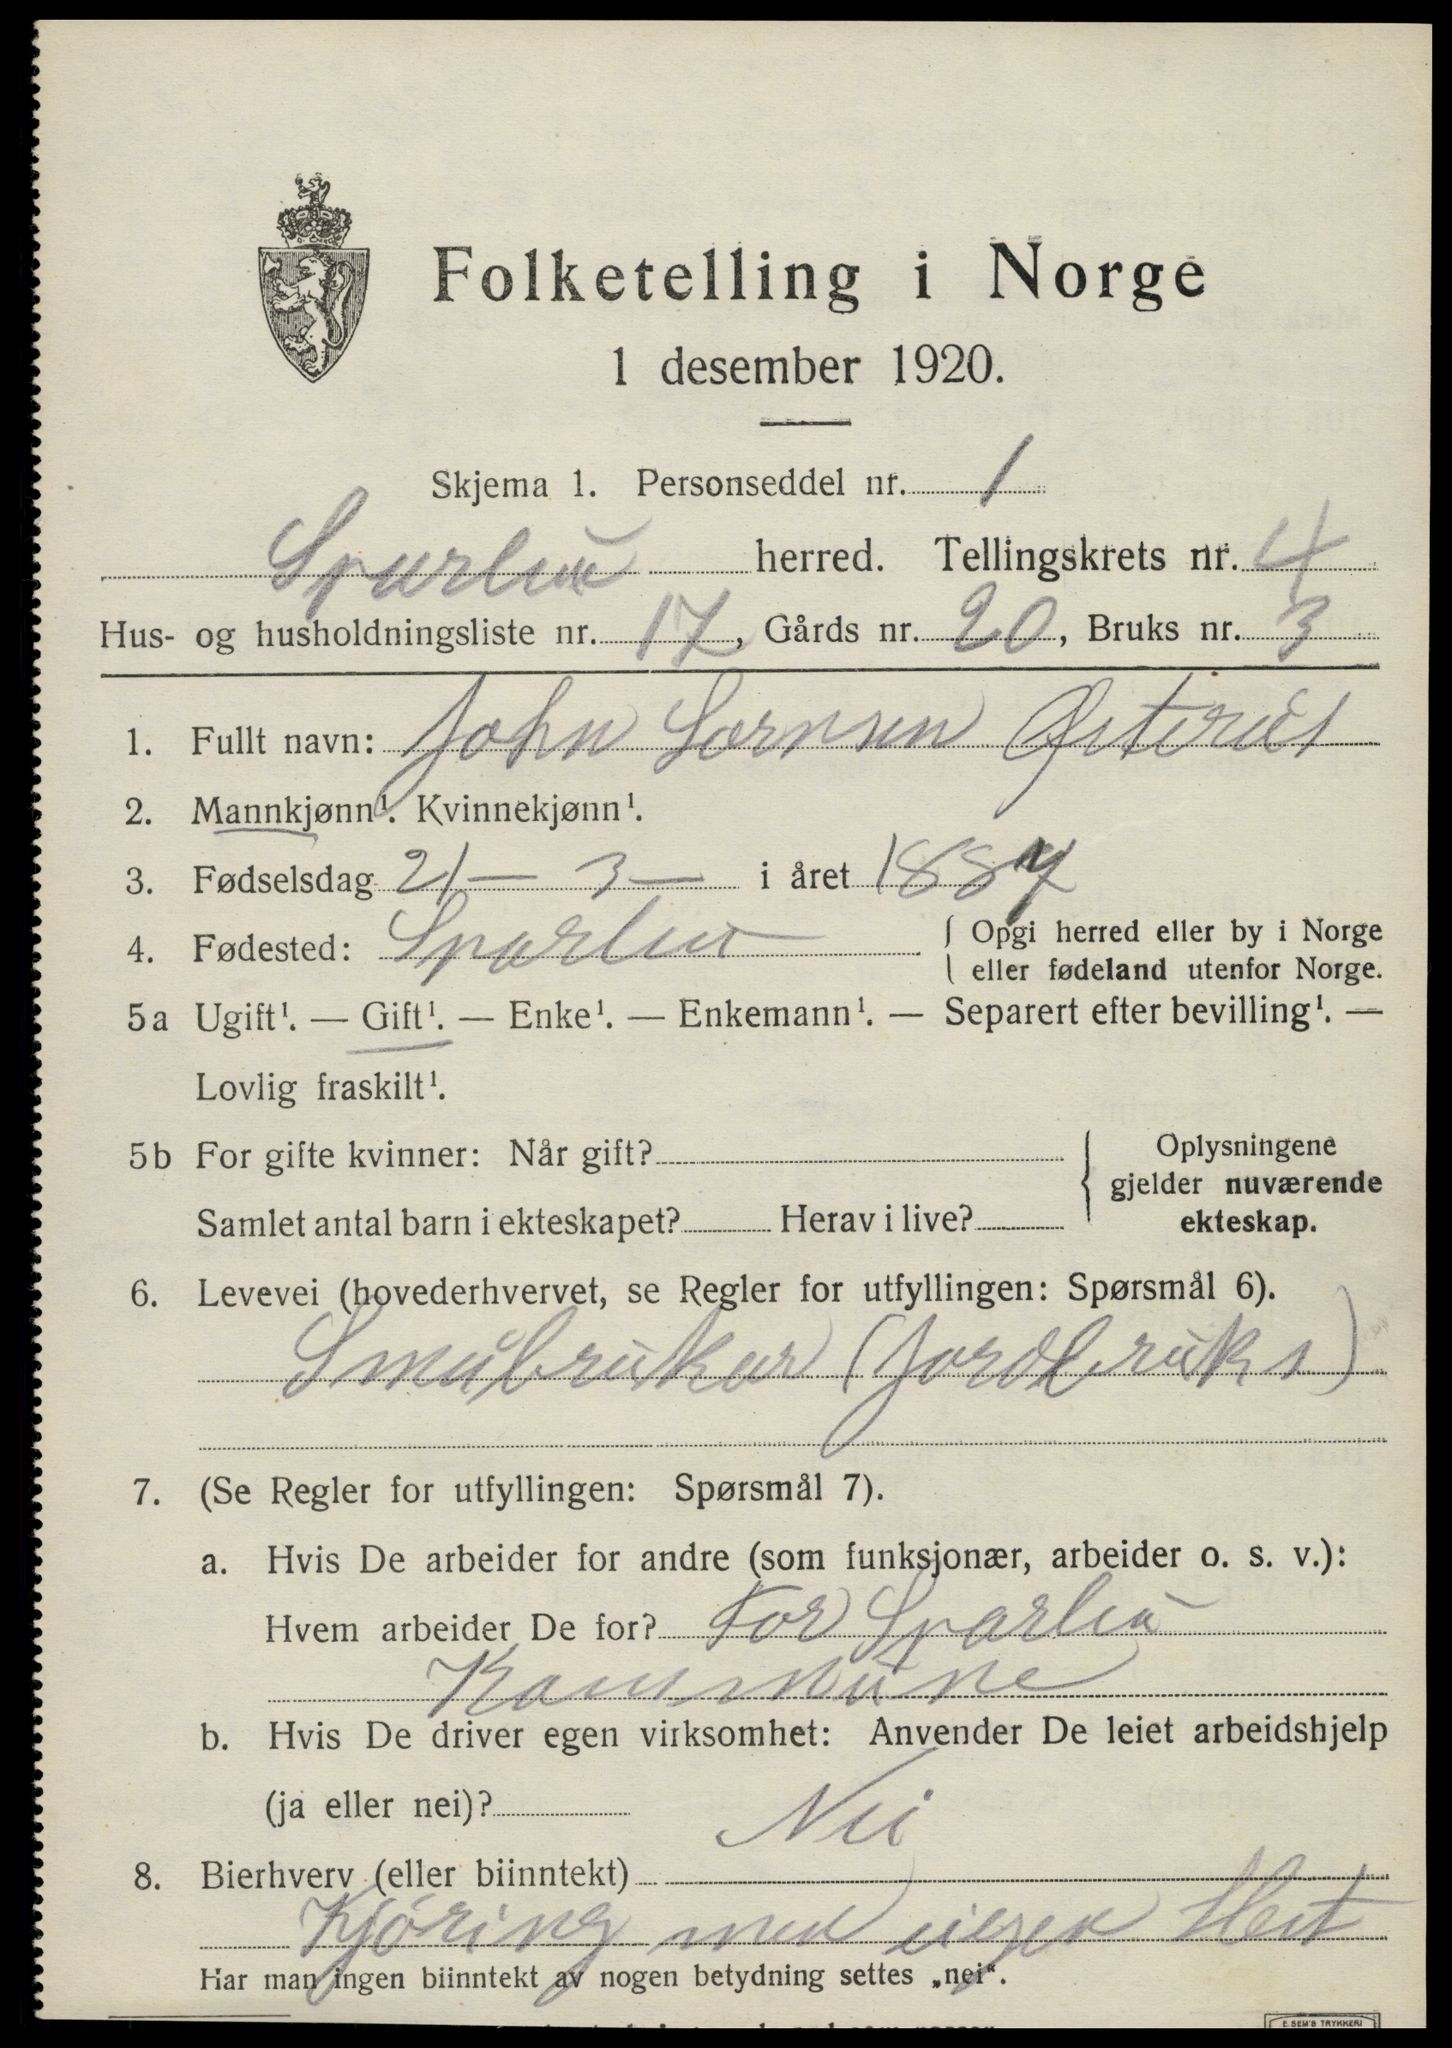 Folketelling i Norge
1 desember 1920.
Skjema 1. Personseddel nr. 1
Sparbu herred. Tellingskrets nr. 4
Hus- og husholdningsliste nr. 17, Gårds nr. 20, Bruks nr. 3
1. Fullt navn: John Lornsen Østerås
2. Mannkjønn¹. Kvinnekjønn¹.
3. Fødselsdag 21 — 3 — i året 1887
4. Fødested: Sparbu { Opgi herred eller by i Norge
eller fødeland utenfor Norge.
5a Ugift¹. — Gift¹. — Enke¹. — Enkemann¹. — Separert efter bevilling¹. —
Lovlig fraskilt¹.
5b For gifte kvinner: Når gift? { Oplysningene
gjelder nuværende
Samlet antal barn i ekteskapet? Herav i live? ekteskap.
6. Levevei (hovederhvervet, se Regler for utfyllingen: Spørsmål 6).
Småbruker (Jordbruks)
7. (Se Regler for utfyllingen: Spørsmål 7).
a. Hvis De arbeider for andre (som funksjonær, arbeider o. s. v.):
Hvem arbeider De for? For Sparbu
Kommune
b. Hvis De driver egen virksomhet: Anvender De leiet arbeidshjelp
(ja eller nei)? Nei
8. Bierhverv (eller biinntekt)
Kjøring med eigen Hest
Har man ingen biinntekt av nogen betydning settes „nei“.
E. SEM'S TRYKKERI